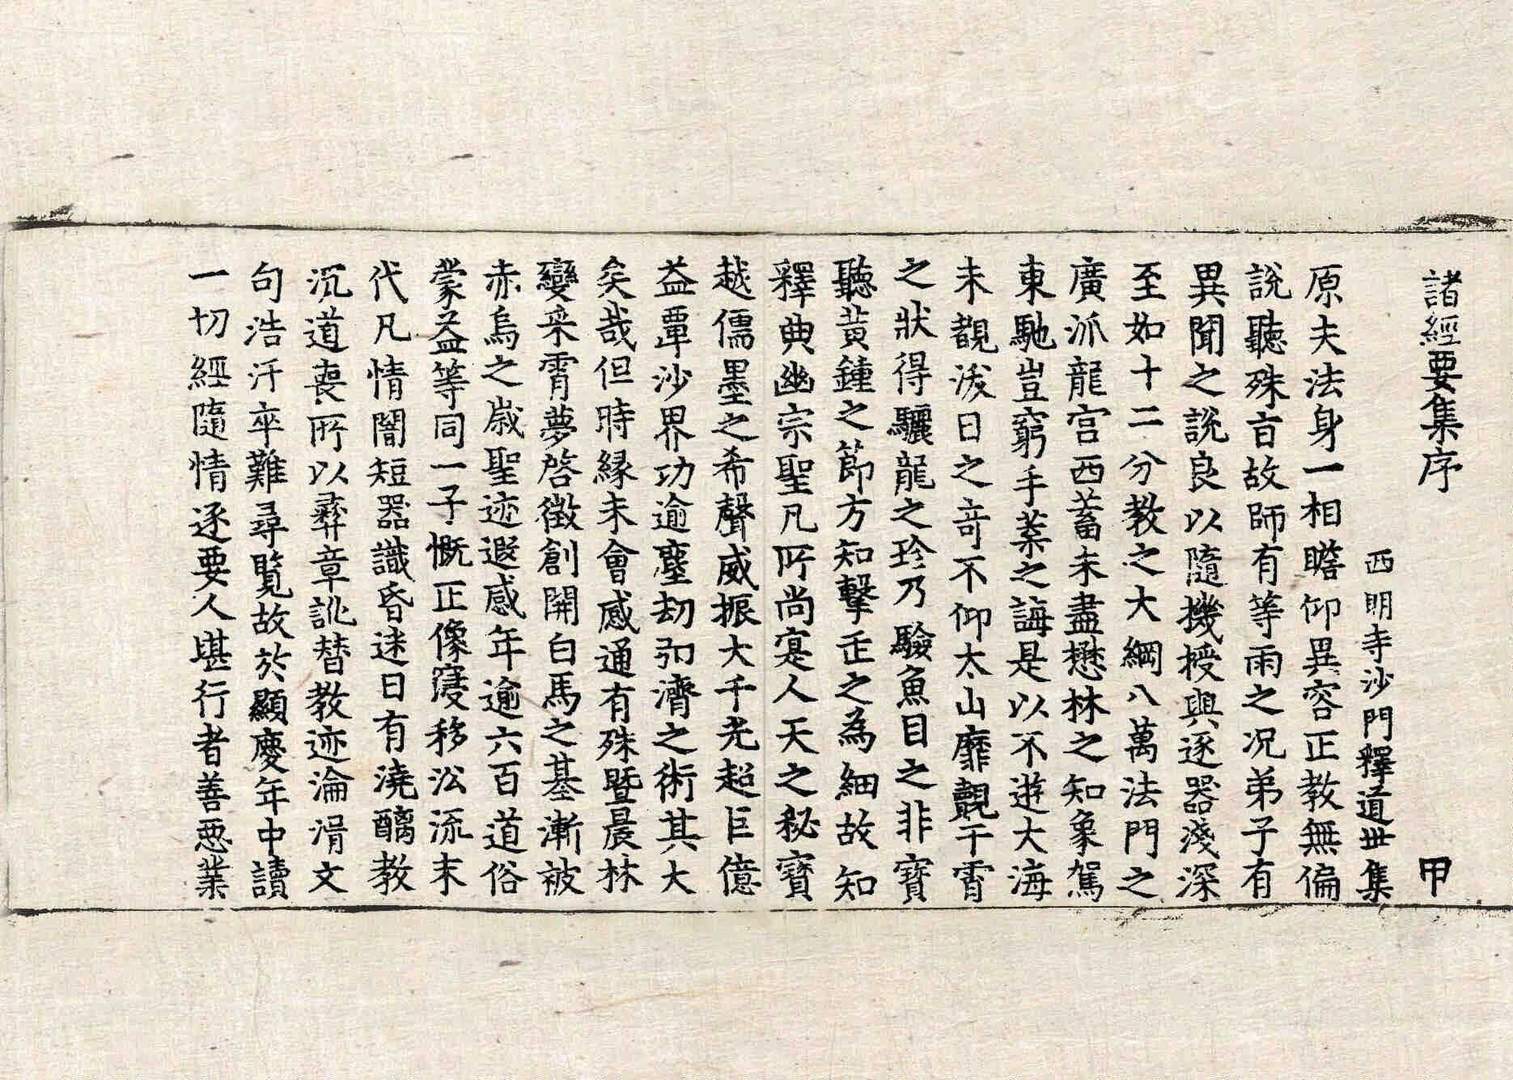 諸經要集序 甲
西明寺沙門釋道世集
原夫法身一相瞻仰異容正教無偏
說聽殊旨故師有等雨之况弟子有
異聞之說良以隨機授與逐器淺深
至如十二分教之大綱八萬法門之
廣派龍宮西蓄未盡懋林之知象駕
東馳豈窮手葉之誨是以不遊大海
未覩浴日之奇不仰太山靡覿干霄
之狀得驪龍之珍乃驗魚目之非寶
聽黃鍾之節方知擊缶之為細故知
釋典幽宗聖凡所尚寔人天之秘寶
越儒墨之希聲威振大千光超巨億
益覃沙界功逾塵劫弘濟之術其大
矣哉但時緣未會感通有殊暨晨林
變采霄夢啓徵創開白馬之基漸被
赤烏之歲聖迹遐感年逾六百道俗
蒙益等同一子慨正像寖移訟流末
代凡情闇短器識昏迷日有澆醨教
沉道喪所以彛章訛替教迹淪湑文
句浩汗卒難尋覽故於顯慶年中讀
一切經隨情逐要人堪行者善惡業